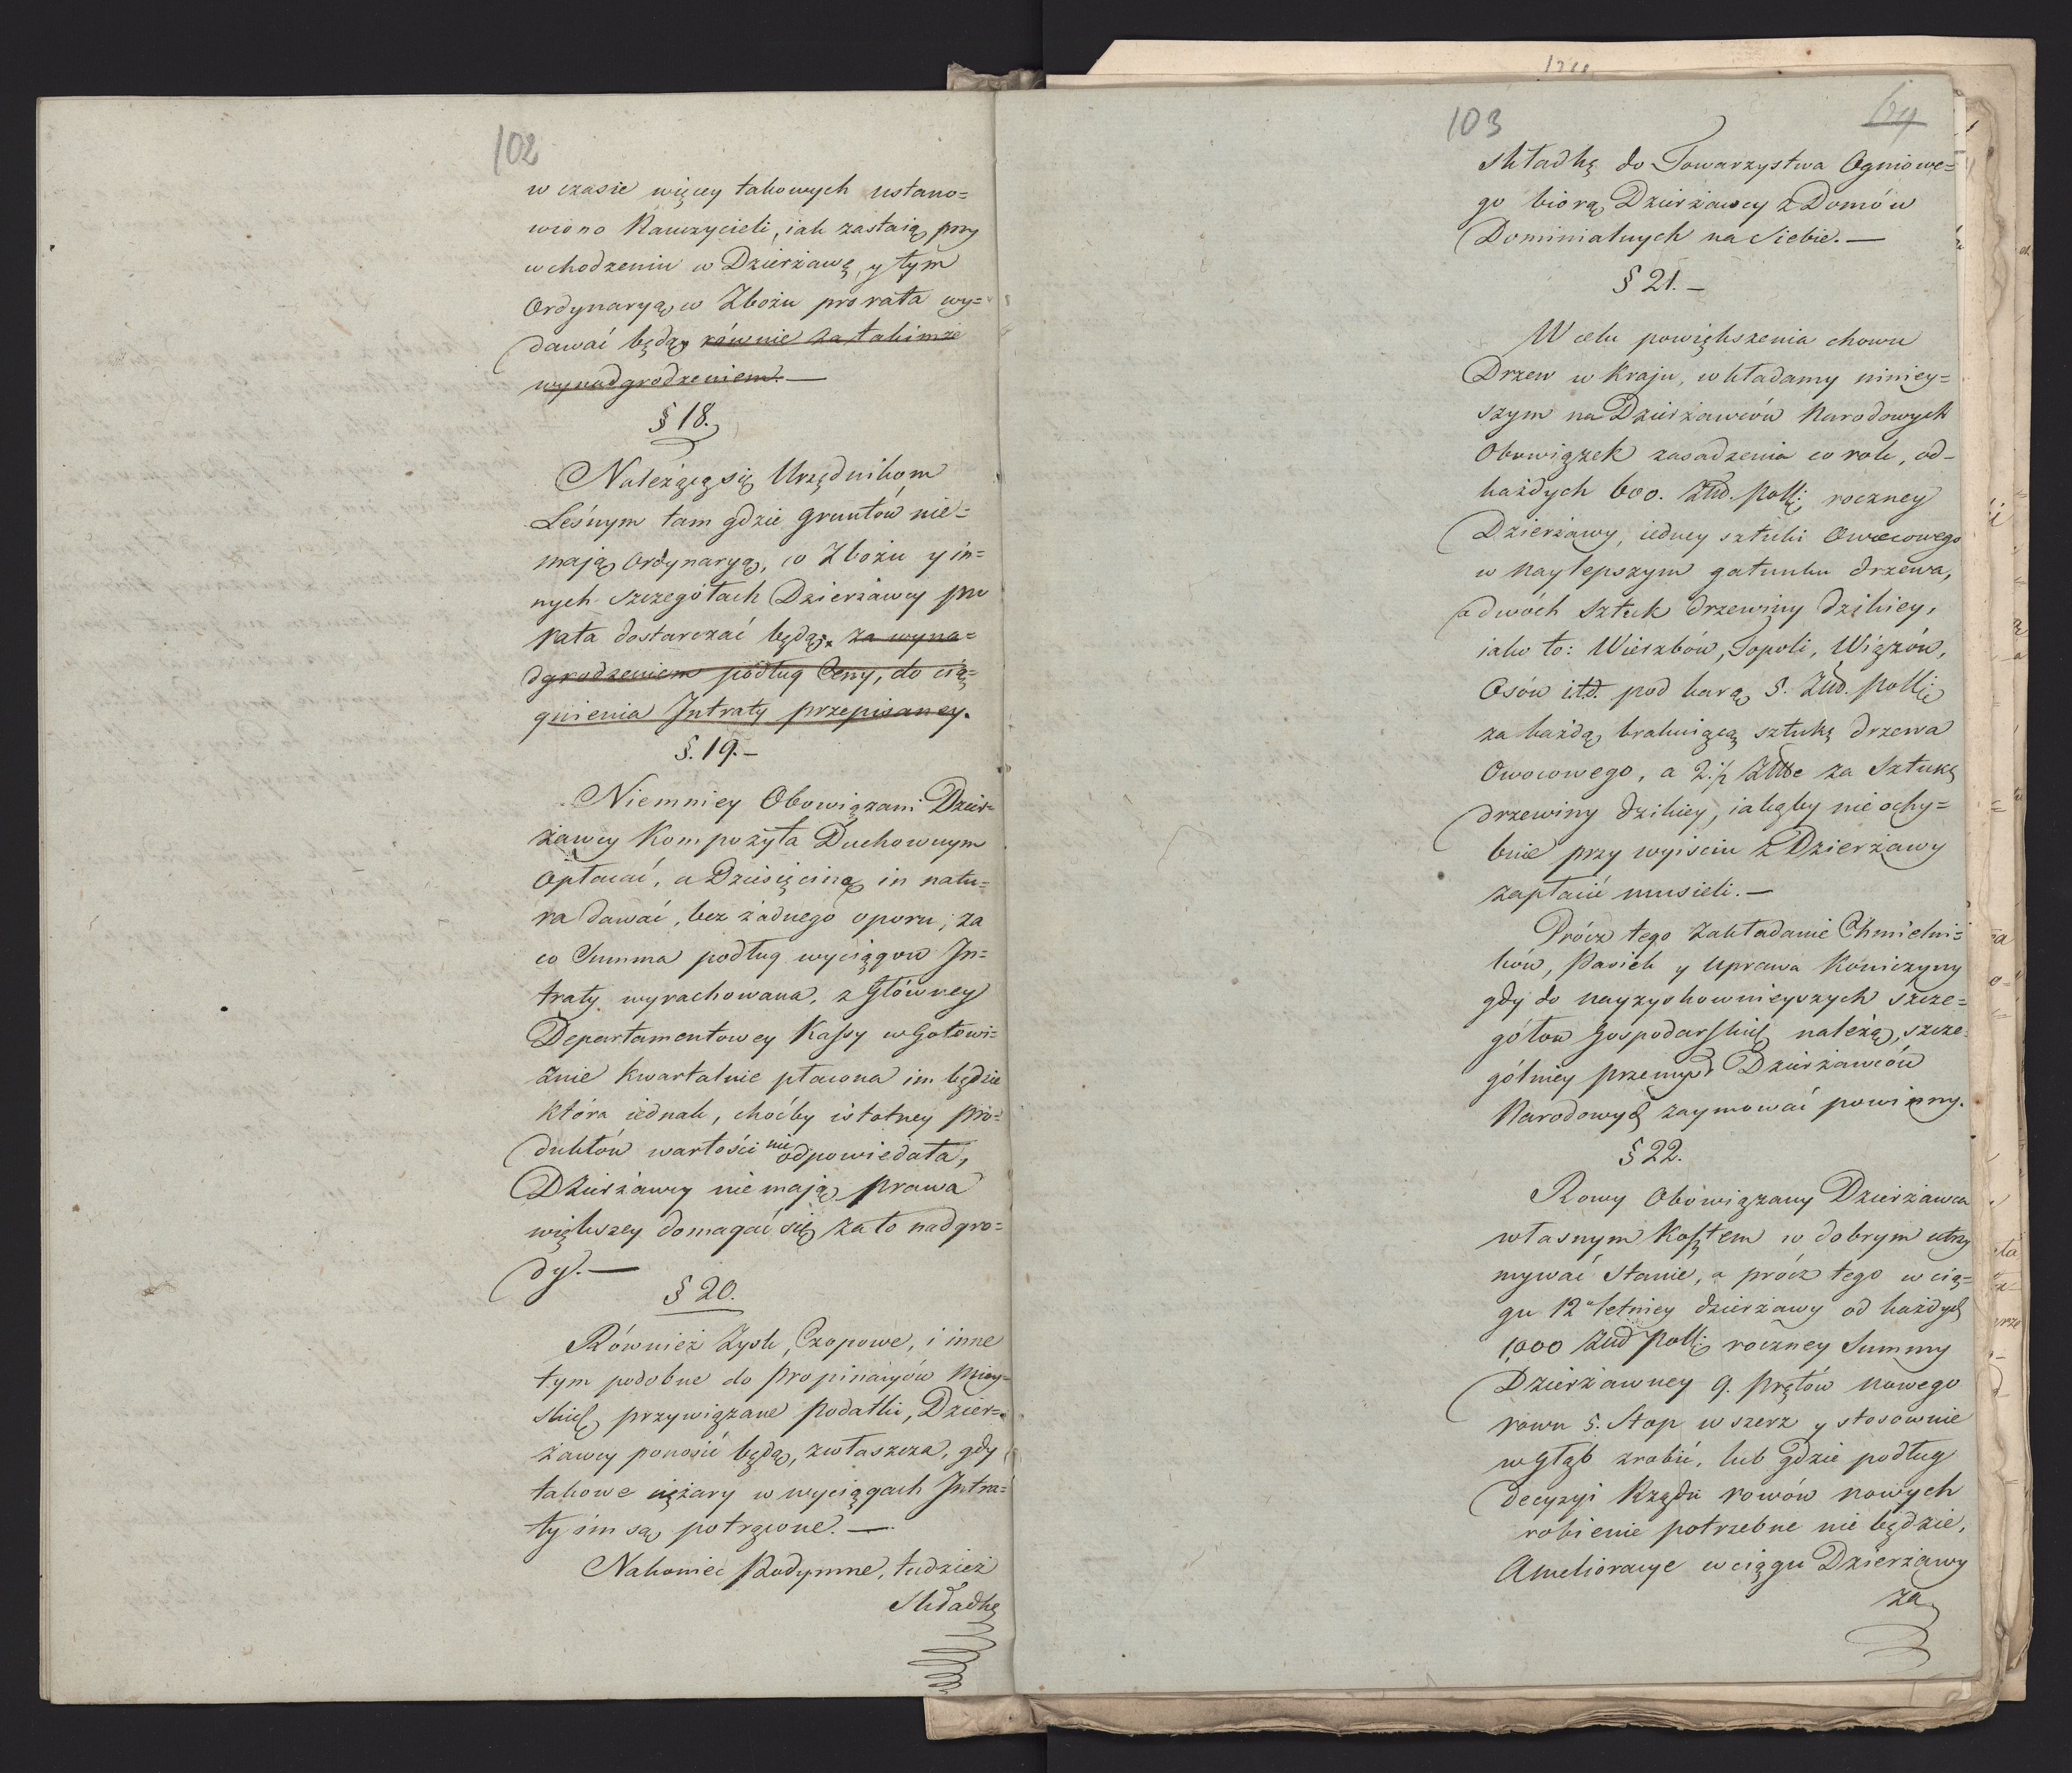 102
w czasie więcey takowych ustano=
wiono Nauczycieli, iak zastaią przy
wchodzeniu w Dzierżawę, y tym
Ordynaryą w Zbożu pro rata wy=
dawać będą, równie za takimże
wynadgrodzeniem. —
§ 18.
Należącą się Urzędnikom
Leśnym tam gdzie gruntów nie=
mają Ordynaryą, w Zbożu y in=
nych szczegółach Dzierżawcy pro
rata dostarczać będą, za wyna=
dgrodzeniem podług Ceny, do cią=
gnienia Intraty przepisaney.
§. 19. —
Niemniey Obowiązani Dzier=
żawcy Kompozyta Duchownym
Opłacać, a Dziesięcinę in natu=
ra dawać, bez żadnego oporu, za
co Summa podług wyciągów In=
traty wyrachowana, z Główney
Departamentowey Kassy w Gotowi=
źnie kwartalnie płacona im będzie
która iednak, choćby istotney pro=
duktów wartości nie odpowiedała,
Dzierżawcy nie mają prawa
większey domagać się za to nadgro=
dy. —
§ 20.
Również Zysk, Czopowe, i inne
tym podobne do Propinacyów Miey=
skich przywiązane podatki, Dzier=
żawcy ponosić będą, zwłaszcza, gdy
takowe ciężary w wyciągach Intra=
ty im są potrącone. —
Nakoniec Podymne, tudzież
Składkę
103
64
składkę do Towarzystwa Ogniowe=
go biorą Dzierżawcy z Domów
Dominialnych na Siebie. —
§ 21. —
W celu powiększenia chowu
Drzew w kraju, wkładamy niniey=
szym na Dzierżawców Narodowych
Obowiązek zasadzenia co rok, od
każdych 600. Złtd. Polk: roczney
Dzierżawy, iedney sztuki Owocowego
w naylepszym gatunku drzewa,
a dwóch Sztuk drzewiny dzikiey,
iako to: Wierzbów, Topoli, Wiązów,
Osów itd. pod karą 5. Złtd. Polk:
za każdą brakuiącą sztukę drzewa
Owocowego, a 2.½ Złtde za Sztukę
drzewiny dzikiey, iakąby nieochy=
bnie przy wyiściu z Dzierżawy
zapłacić musieli. —
Prócz tego Zakładanie Chmielni=
ków, Pasiek y uprawa Koniczyny
gdy do nayzyskownieyszych szcze=
gółów Gospodarskich należą, szcze=
gólniey przemysł Dzierżawców
Narodowych zaymować powinny.
§ 22.
Rowy Obowiązany Dzierżawca
własnym kosztem w dobrym utrzy
mywać Stanie, a prócz tego w cią=
gu 12letniey dzierżawy od każdych
1,000 Złtd Polk: roczney Summy
Dzierżawney 9. Prętów nowego
rowu 5. Stop wszerz y stosownie
w głąb zrobić, lub gdzie podług
decyzyi Rządu rowów nowych
robienie potrzebne nie będzie,
Amelioracye w ciągu Dzierżawy
za